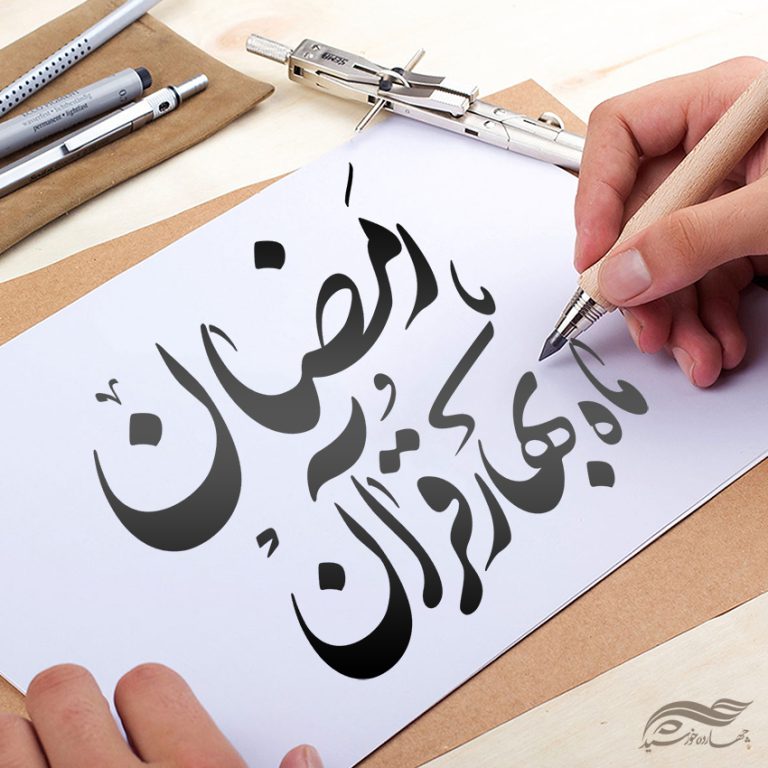 رمضان
ماه بهار قرآن
permanent • lightfast
چهارده خورشید